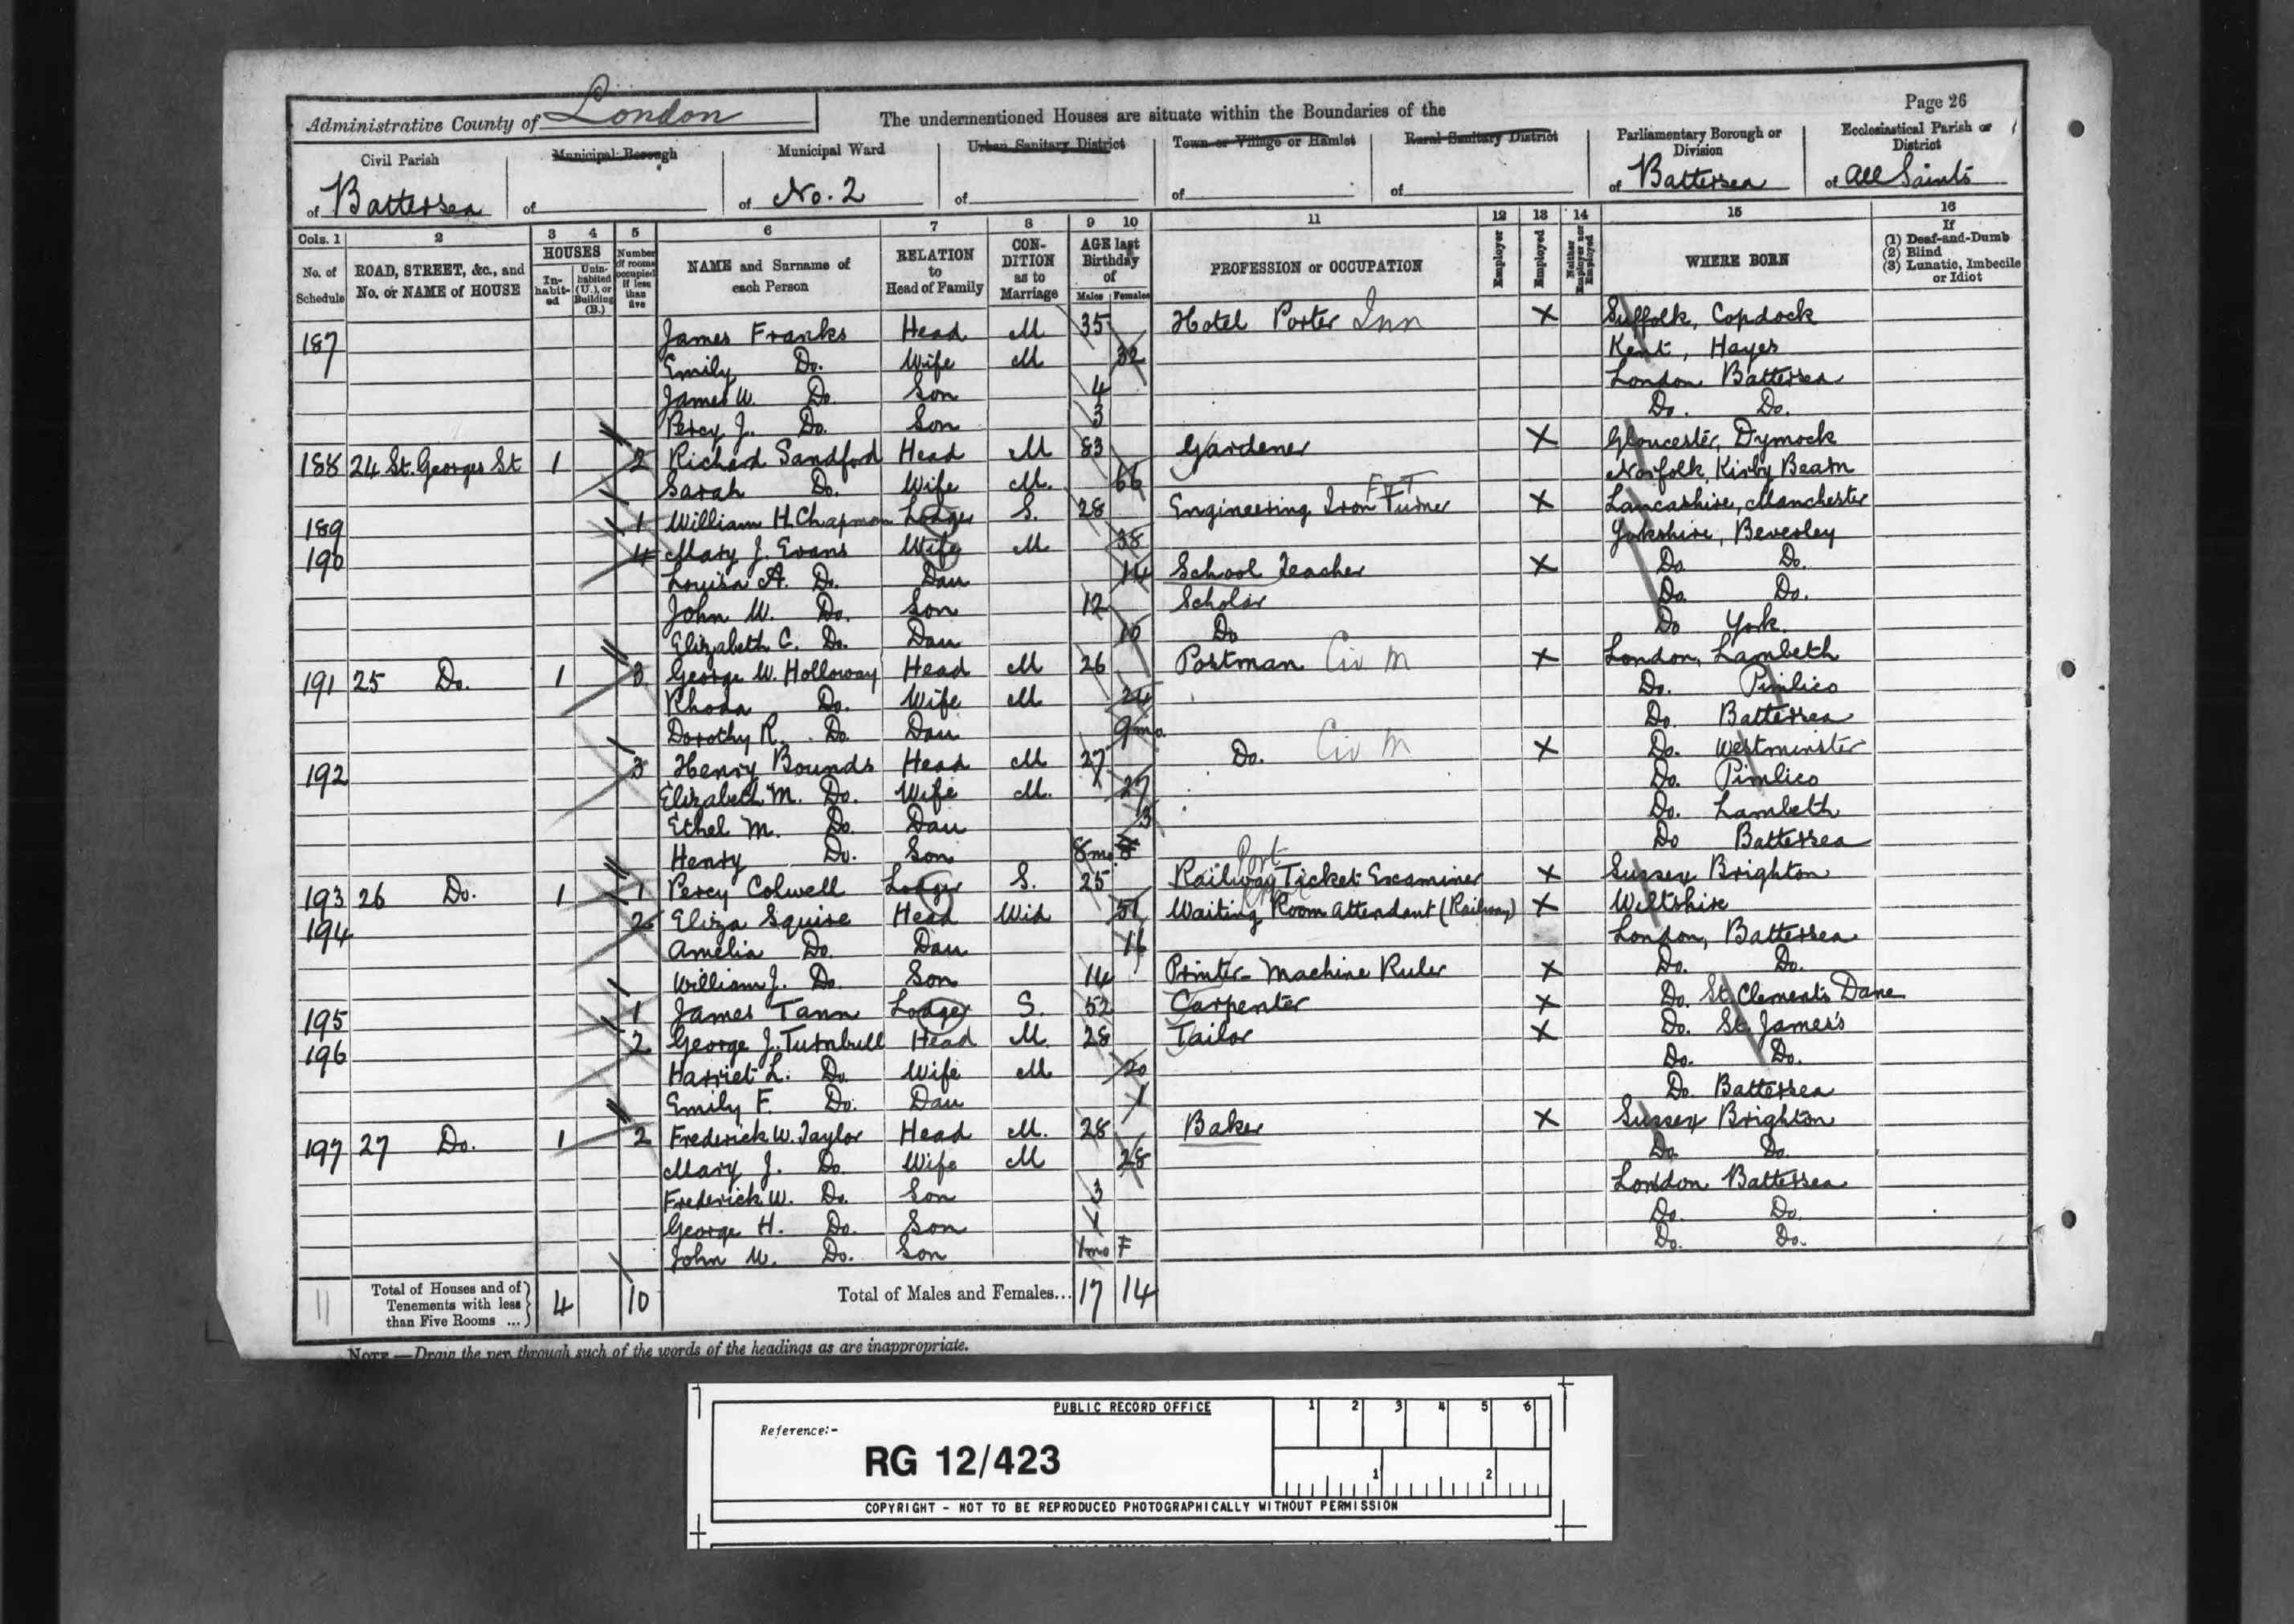 Administrative County of London
The undermentioned Houses are situate within the Boundaries of the
Page 26
Civil Parish of Battersea
Municipal Borough of
Municipal Ward of No. 2
Urban Sanitary District of
Town or Village or Hamlet of
Rural Sanitary District of
Parliamentary Borough or Division of Battersea
Ecclesiastical Parish or District of All Saints
Cols. 1 2 3 4 5 6 7 8 9 10 11 12 13 14 15 16
No. of Schedule
ROAD, STREET, &c., and No. or NAME of HOUSE
HOUSES
In-habit-ed
Unin-habited (U.), or Building (B.)
Number of rooms occupied if less than five
NAME and Surname of each Person
RELATION to Head of Family
CON-DITION as to Marriage
AGE last Birthday of
Males Females
PROFESSION or OCCUPATION
Employer
Employed
Neither Employer nor Employed
WHERE BORN
If
(1) Deaf-and-Dumb
(2) Blind
(3) Lunatic, Imbecile or Idiot
187 James Franks Head M 35 Hotel Porter Inn X Suffolk, Copdock
Emily Do. Wife M 32 Kent, Hayes
James W. Do. Son 4 London Battersea
Percy J. Do. Son 3 Do. Do.
188 24 St. Georges St 1 2 Richard Sandford Head M 83 Gardener X Gloucester, Dymock
Sarah Do. Wife M. 66 Norfolk, Kirby Beam
189 1 William H. Chapman Lodger S. 28 Engineering Iron Turner F & T X Lancashire, Manchester
190 4 Mary J. Evans Wife M 38 Yorkshire, Beverley
Louisa A. Do. Dau 14 School Teacher X Do. Do.
John W. Do. Son 12 Scholar Do. Do.
Elizabeth C. Do. Dau 10 Do Do York
191 25 Do. 1 3 George W. Holloway Head M 26 Postman Civ M X London, Lambeth
Rhoda Do. Wife M 24 Do. Pimlico
Dorothy R. Do. Dau 9mo. Do. Battersea
192 3 Henry Bounds Head M 27 Do. Civ M X Do. Westminster
Elizabeth M. Do. Wife M. 27 Do. Pimlico
Ethel M. Do. Dau 3 Do. Lambeth
Henry Do. Son 8mo. Do Battersea
193 26 Do. 1 1 Percy Colwell Lodger S. 25 Railway Ticket Examiner Port X Sussex Brighton
194 2 Eliza Squire Head Wid 51 Waiting Room Attendant (Railway) X Wiltshire
Amelia Do. Dau 16 London, Battersea
William J. Do. Son 14 Printer- Machine Ruler X Do. Do.
195 1 James Tann Lodger S. 52 Carpenter X Do. St. Clements Dane
196 2 George J. Turnbull Head M. 28 Tailor X Do. St. James's
Harriet L. Do. Wife M 20 Do. Do.
Emily F. Do. Dau 1 Do. Battersea
197 27 Do. 1 2 Frederick W. Taylor Head M. 28 Baker X Sussex Brighton
Mary J. Do. Wife M 28 Do. Do.
Frederick W. Do. Son 3 London Battersea
George H. Do. Son 1 Do. Do.
John W. Do. Son 1mo F Do. Do.
11 Total of Houses and of Tenements with less than Five Rooms ... 4 10 Total of Males and Females... 17 14
NOTE.—Draw the pen through such of the words of the headings as are inappropriate.
PUBLIC RECORD OFFICE
1 2 3 4 5 6
Reference:-
RG 12/423
1 2
COPYRIGHT - NOT TO BE REPRODUCED PHOTOGRAPHICALLY WITHOUT PERMISSION